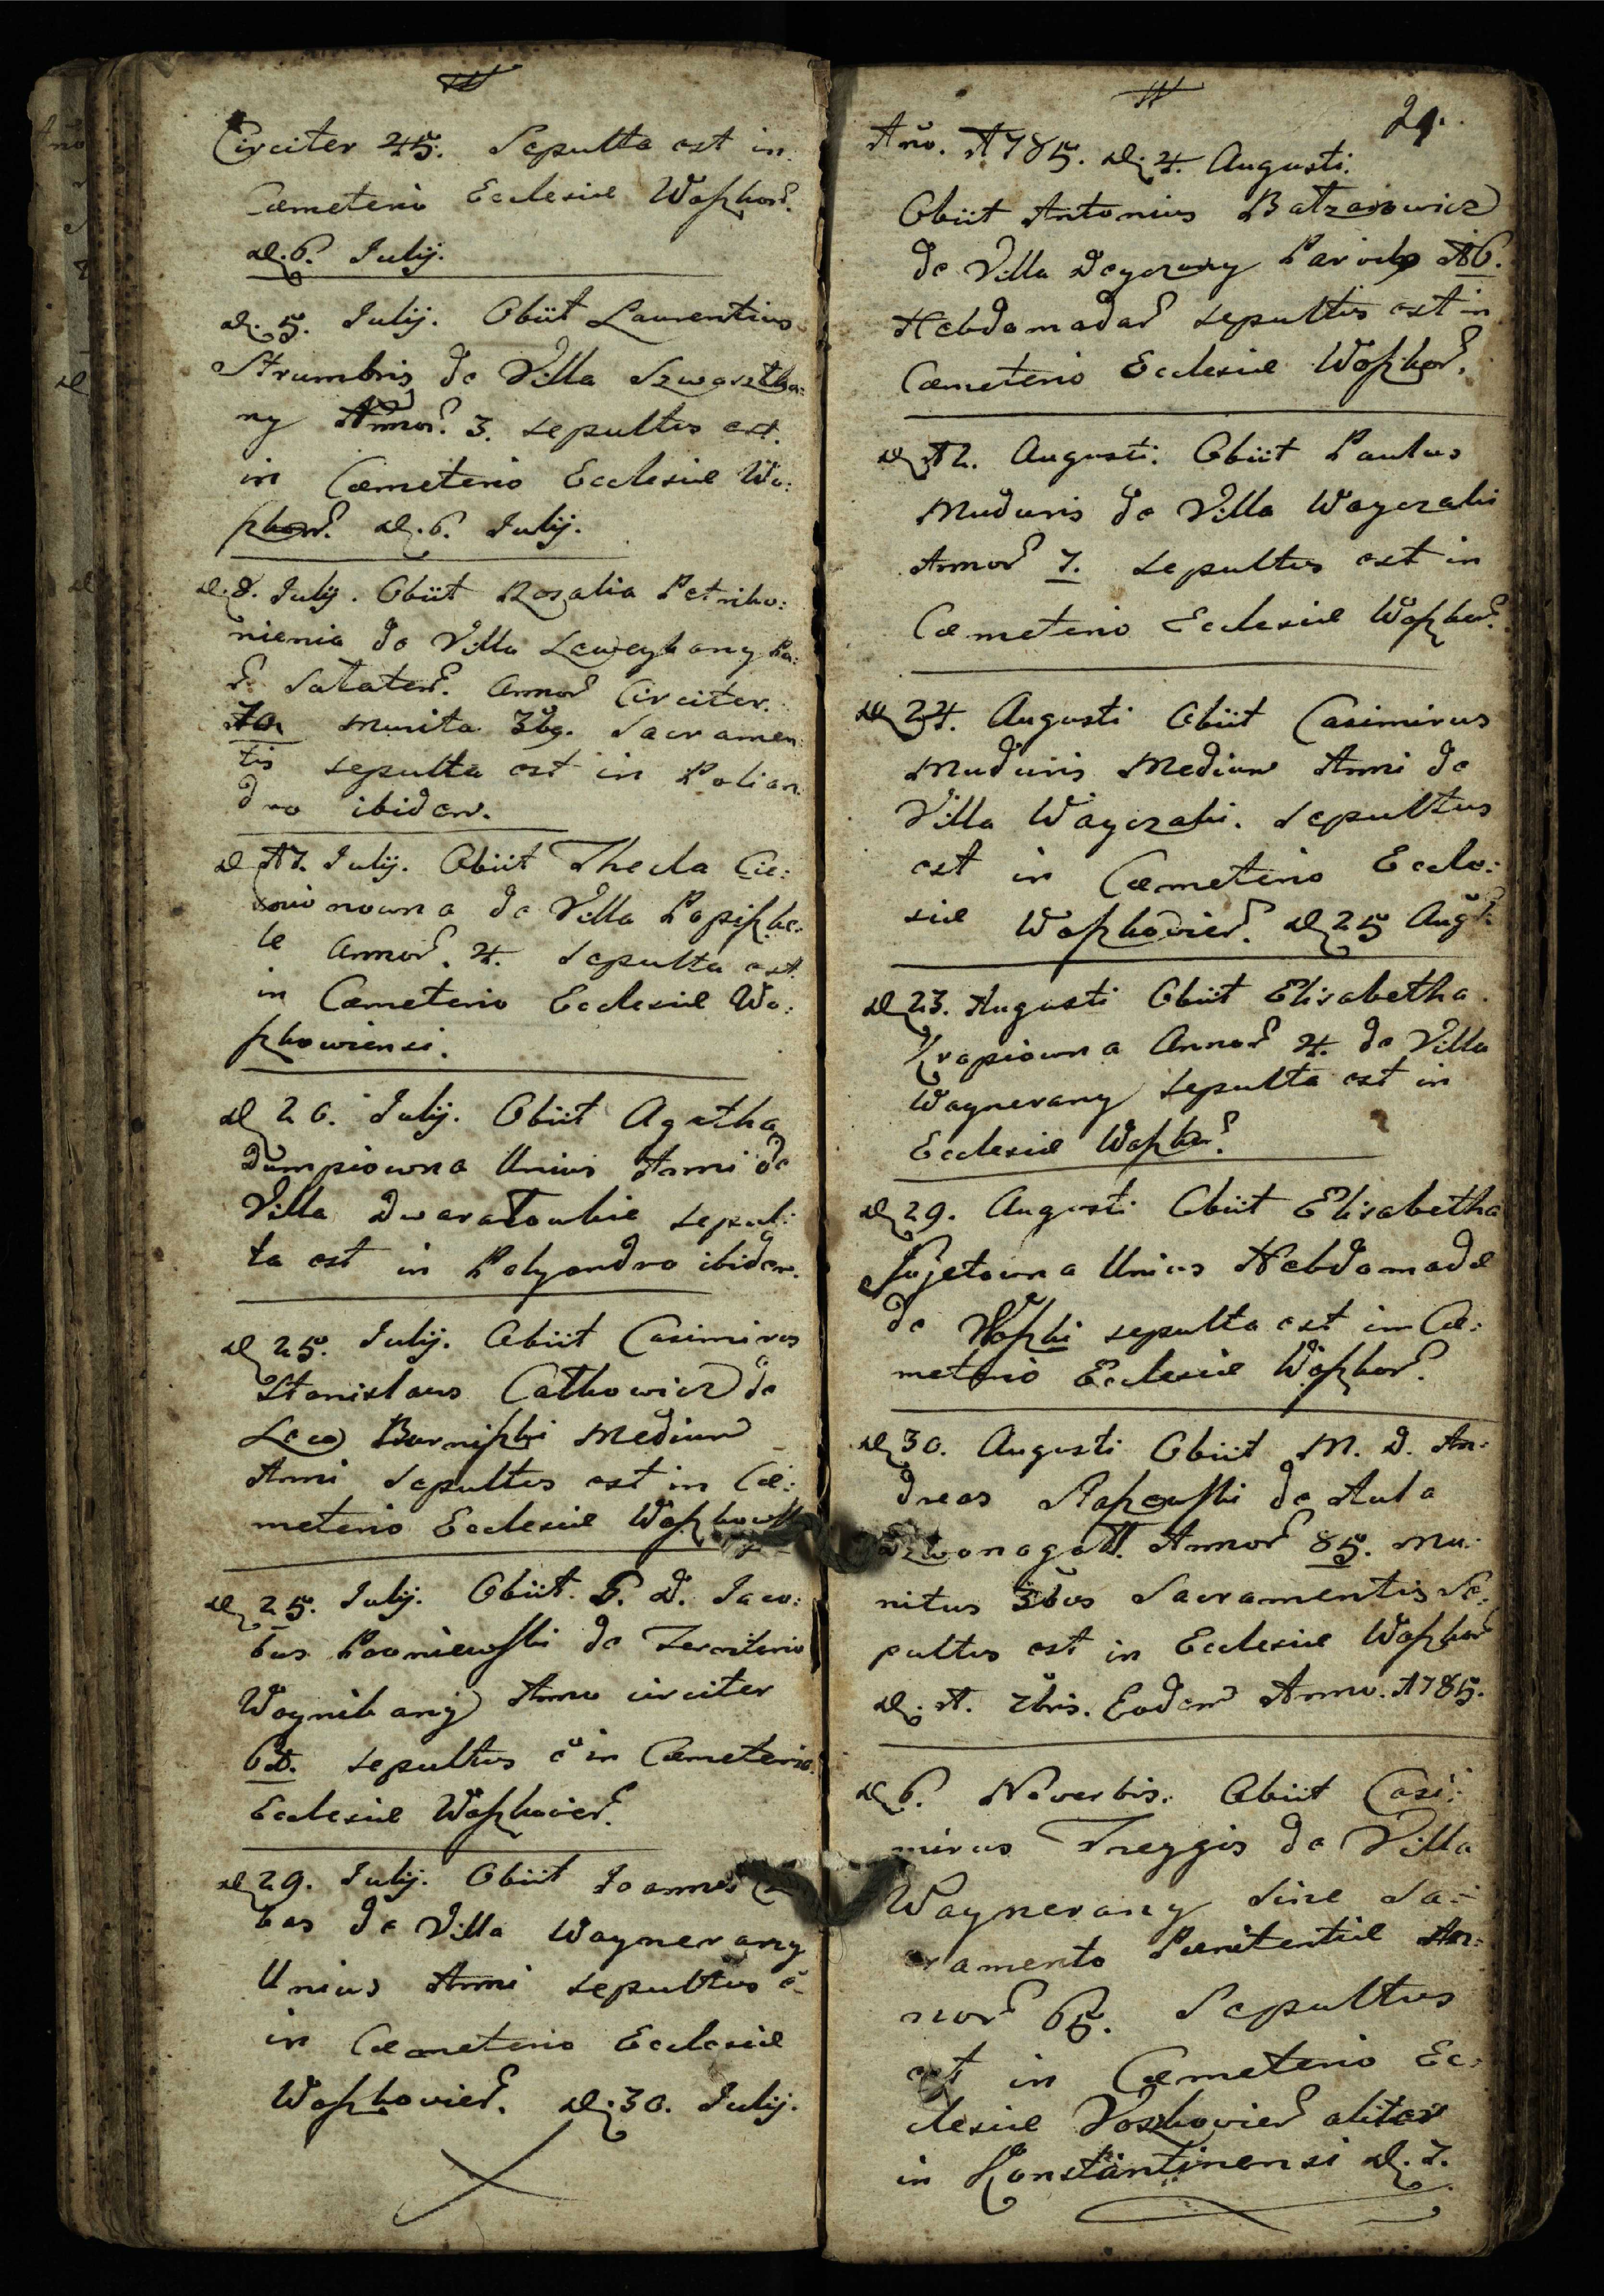 Circiter 45. Sepulta est in
Cæmeterio Ecclesiæ Waszkow.
D. 6. Julij.
D. 5. Julij. Obiit Laurentius
Strumbris de Villa Szwarztka:
ny Annor. 3. sepultus est.
in Cæmeterio Ecclesiæ Wa:
szkow. D. 6. Julij.
D. 8. Julij. Obiit Rozalia Petriko:
nienia de Villa Laweykany Pa:
r. Salaten. Annor Circiter.
70 munita 3bg. Sacramen
tis sepulta est in Polian
dro ibidem.
D 17. Julij. Obiit Thecla Cie:
nowna de Villa Popiszke:
le Annor. 4. Sepulta est
in Cæmeterio Ecclesiæ Wa:
szkowiensi.
D 20. Julij. Obiit Agatha
Dumpiowna Unius Anni de
Villa Dwaraloukie sepul:
ta est in Polyandro ibidem.
D 25. Julij. Obiit Casimirus
Stanislaus Catkowicz de
Loco Burniszki Medium
Anni Sepultus est in Cæ:
meterio Ecclesiæ Waszkow
D 25. Julij. Obiit. G. D. Jaco:
bus Pooniewski de Territorio
Woynikany Anno circiter
60. sepultus ē in Cæmeterio
Ecclesiæ Waszkovien.
D 29. Julij. Obiit Joannes
bas de Villa Waynerany
Unius Anni sepultus ē
in Cæmeterio Ecclesiæ
Waszkovien. D. 30. Julij.
21.
Ano. 1785. D. 4. Augusti.
Obiit Antonius Batzanowicz
de Villa Deyczuny Paroch 16.
Hebdomadar sepultus est in
Cæmeterio Ecclesiæ Waszkow.
D 12. Augusti. Obiit Paulus
Muduris de Villa Wayczaki
Annor 7. sepultus est in
Cæmeterio Ecclesiæ Waszkow.
D 24. Augusti Obiit Casimirus
Muduris Medium Anni de
Villa Wayczaki. sepultus
est in Cæmeterio Eccle:
siæ Waszkovien. D 25 Augti
D 23. Augusti Obiit Elisabetha
Krapiowna Annor 4. de Villa
Waynerany sepulta est in
Ecclesiæ Waszkow.
D 29. Augusti Obiit Elisabetha
Pujetowna Unius Hebdomadæ
de Waszki sepulta est in Cæ:
meterio Ecclesiæ Waszkow.
D 30. Augusti Obiit M. D. An:
dreas Staszewski de Aula
Dzwonogoll. Annor 85. mu:
nitus 3bus Sacramentis Se:
pultus est in Ecclesiæ Waszkow
D. 1. 7bris. Eodem Anno. 1785.
D 6. Noverbis. Obiit Casi:
mirus Treggis de Villa
Waynerany sine Sa:
cramento Pænitentiæ An:
nor 65. Sepultus
est in Cæmeterio Ec:
clesiæ Voszkovien aliter
in Konstantinensi D. 7.